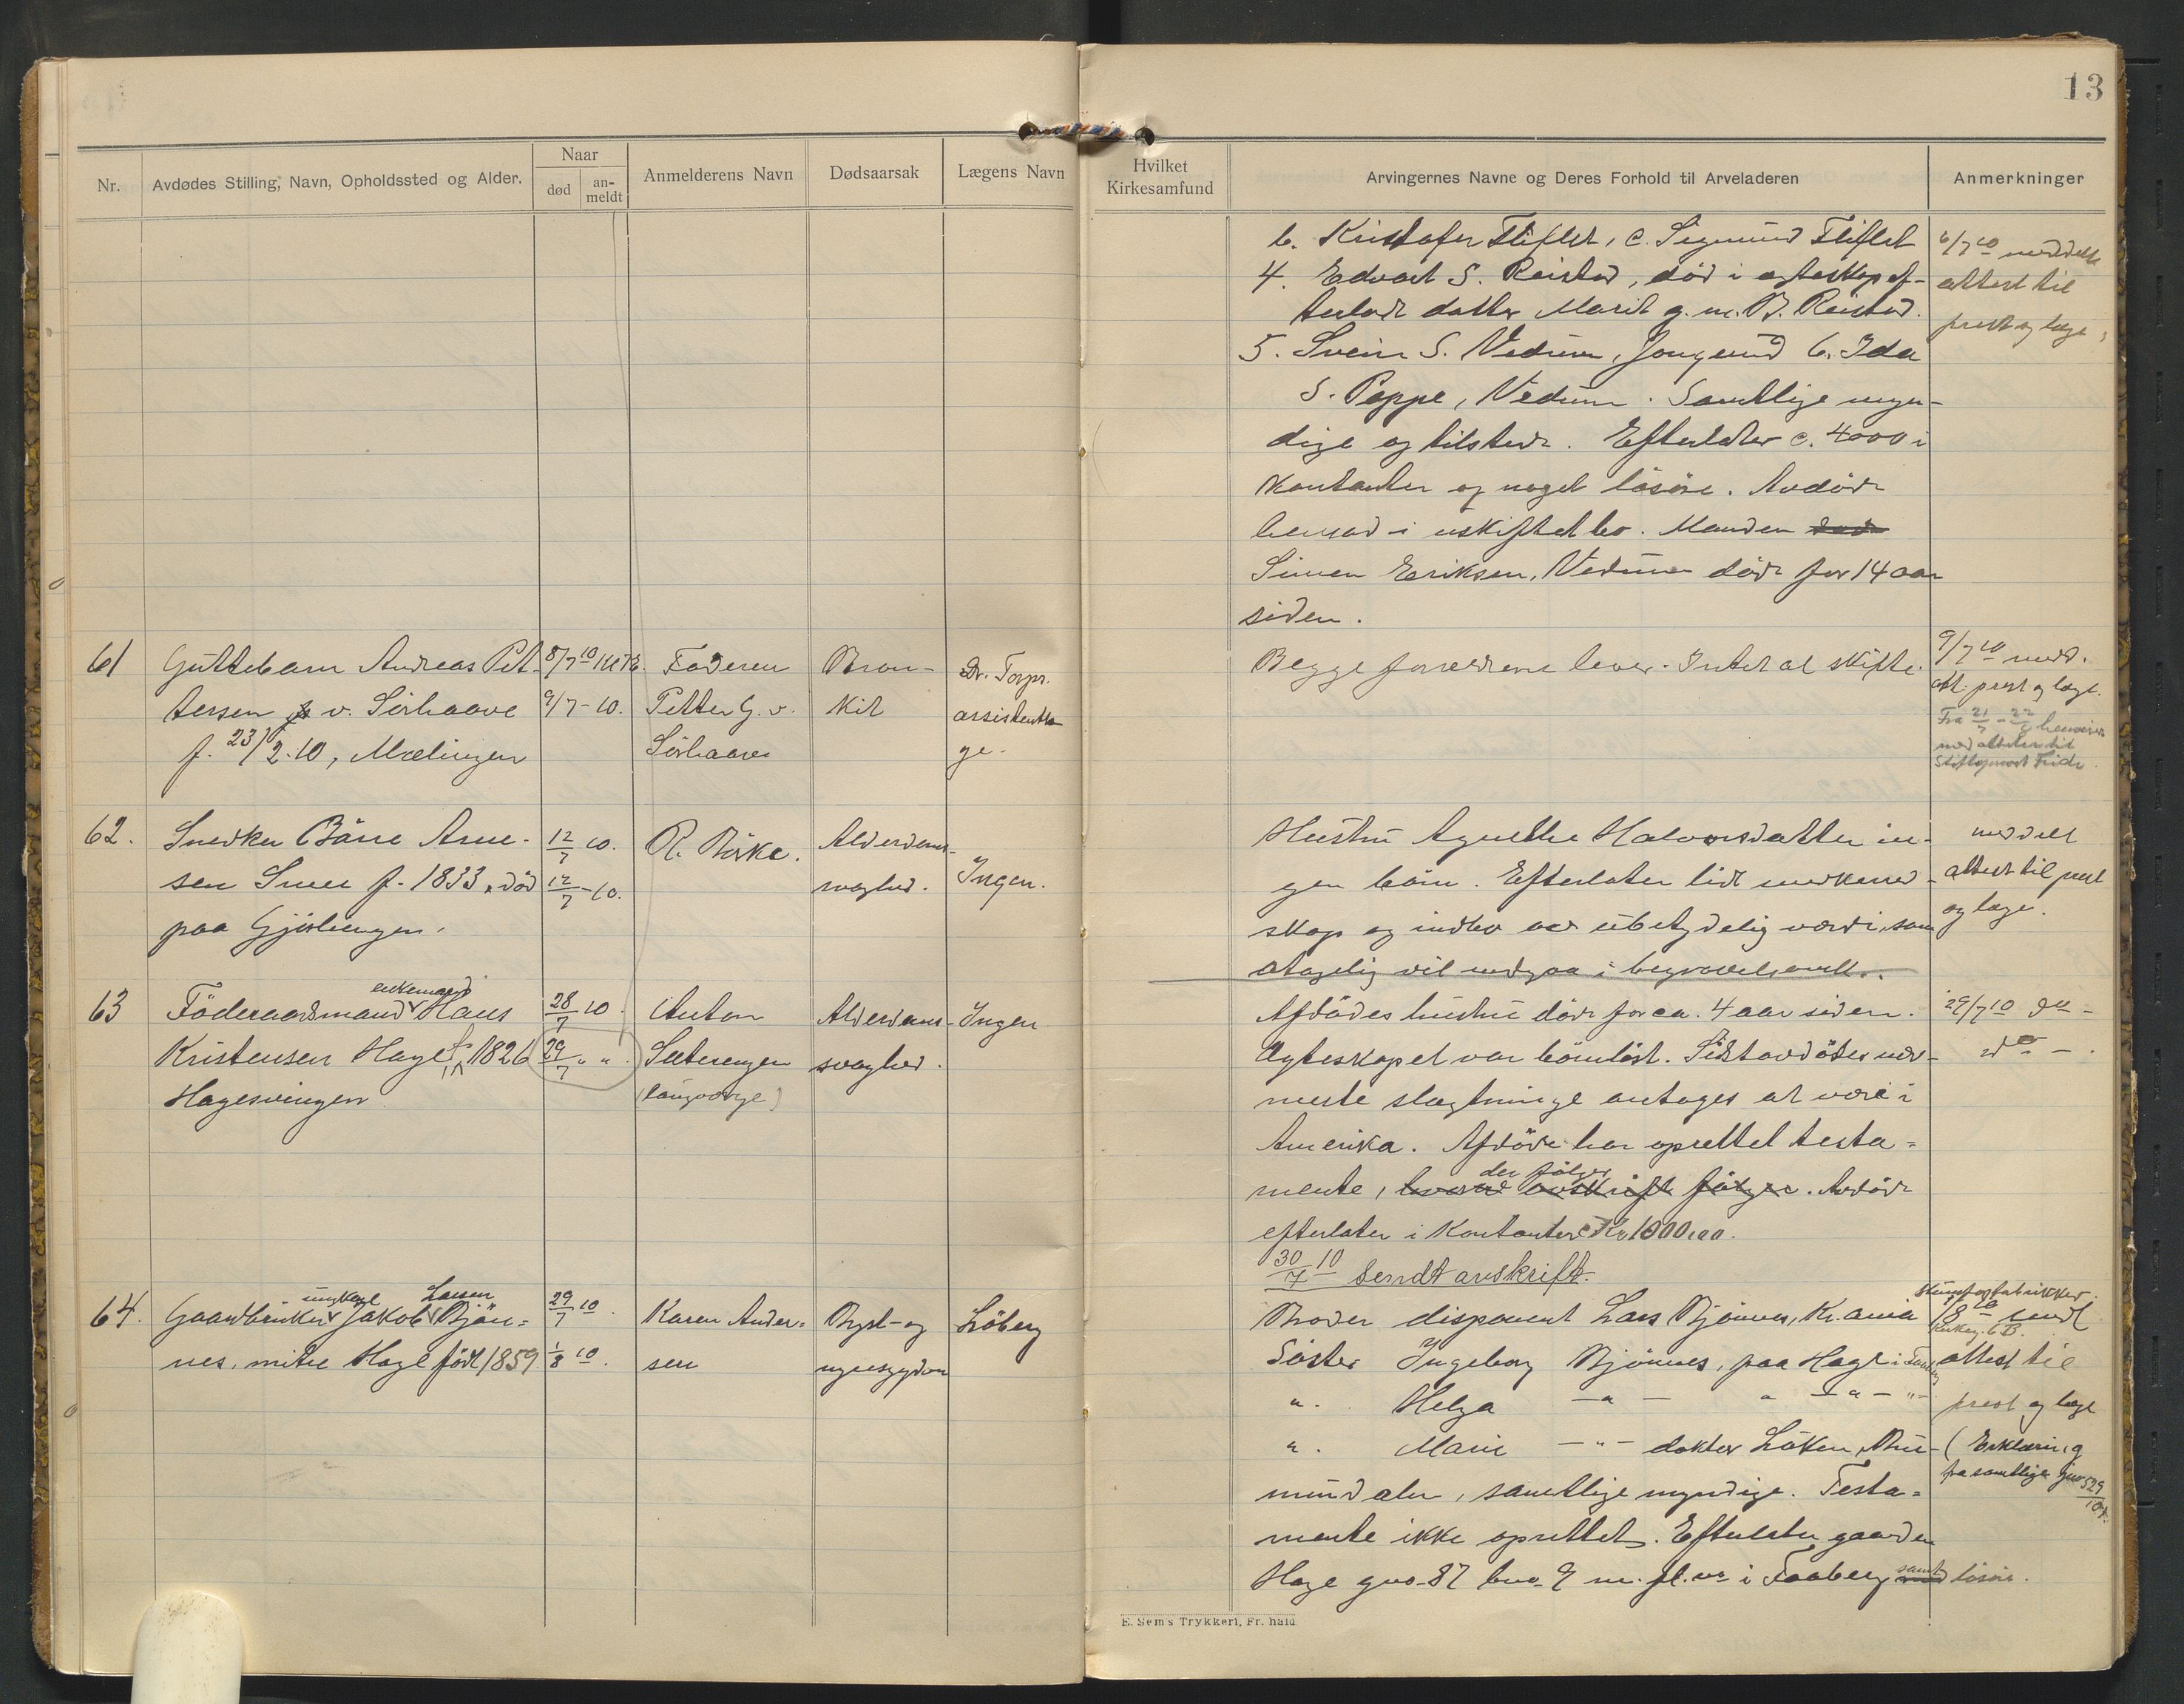 13
Nr.
Avdødes Stilling, Navn, Opholdssted og Alder.
Naar
død
an-
meldt
Anmelderens Navn
Dødsaarsak
Lægens Navn
Hvilket
Kirkesamfund
Arvingernes Navne og Deres Forhold til Arveladeren
Anmerkninger
b. Kristofer Fliflet, c. Sigmund Fliflet
4. Edvart S. Reistad, död i egteskap ef-
terladt datter Marit g. m. B. Reistad.
5. Svein S. Vedum, 6. Ida
S. Poppe, Vedum. Samtlige myn-
dige og tilstede. Efterlater c. 4000 i
kontanter og noget lösöre. Avdöde
hensad i uskiftet bo. Manden
Simen Eriksen, Vedum döde for 14 aar
siden.
6/7 10 meddelt
attest til
prest og læge
61
Guttebarn Andreas Pet-
tersen v. Sörhaave
f. 23/2-10, Mælingen
8/7 10
9/7-10.
Faderen
Petter G. v.
Sörhaave
Bron-
kit
Dr. Torpr.
assistentlæ
ge.
Begge forældrene lever. Intet at skifte.
9/7 10 medd.
att. prest og læge.
62.
Snedker Börre Arne-
sen Smer f. 1833, död
paa Gjörlingen.
12/7 10.
12/7-10.
R. Börke.
Alderdoms-
svaghed.
Ingen.
Hustru Agnethe Halvorsdatter in-
gen börn. Efterlater lidt snedkerred-
skap og indbo av ubetydelig værdi, som
antagelig vil medgaa i begravelsomk.
meddelt
attest til prest
og læge.
63
enkemand
Föderaadsmand Haus
Kristensen Hage f. 1826
Hagesvingen
28/7 10.
29/7 " "
Anton
Sæterengen
Alderdoms-
svaghed.
Ingen
Afdödes hustru döde for ca. 4 aar siden.
Ægteskapet var börnlöst. Sidstavdödes nær-
meste slægtninge antages at være i
Amerika. Afdöde har oprettet testa-
mente, hvorav avskrift fölger. Avdöde
der fölger
efterlater i kontanter c Kr 1000,00.
30/7 10 Sendt avskrift.
29/7 10 do -
do -
64.
ungkarl Larsen
Gaardbruker Jakob Bjön-
nes, nitre Hage født 1859.
29/7 10.
1/8 10.
Karen Ander-
sen
Bryst- og
nyresygdom
Löberg
Broder disponent Lars Bjönnes, Kr.ania
Söster Ingeborg Bjönnes, paa Hage i Faaberg
" . Helga - " - " - " - " -
" . Marie - " - doktor Löken, Bru-
munddalen, samtlige myndige. Testa-
mente ikke oprettet. Efterlater gaarden
Hage gno. 87 bno. 9 m. fl. i Faaberg samt lösöre.
attest til
prest og læge
(Erklæring
fra samtlige
E. Sem's Trykkeri, Fr. hald